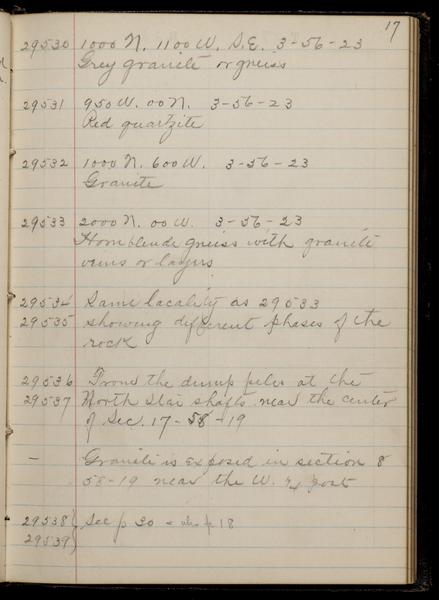 17
29530 1000 N. 1100 W. S.E. 3-56-23
Grey granite or gneiss
29531 950 W. 00 N. 3-56-23
Red quartzite
29532 1000 N. 600 W. 3-56-23
Granite
29533 2000 N. 00 W. 3-56-23
Hornblende gneiss with granite
veins or layers
29534 Same locality as 29533
29535 showing different phases of the
rock
29536 From the dump piles at the
29537 North Star shafts near the center
of Sec. 17-58-19
— Granite is exposed in section 8
58-19 near the W. ¼ post
29538 } See p 30 - also p 18
29539 }